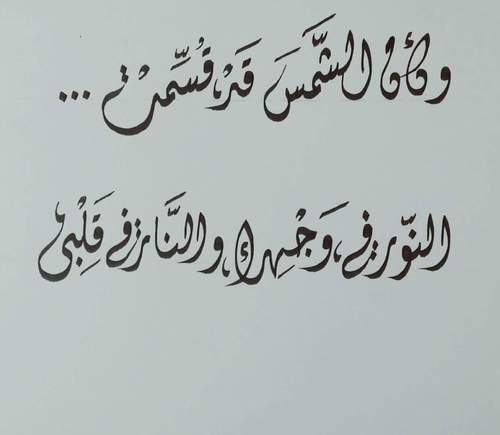 وكأن الشَّمسَ قَد قُسِّمت ...
النّور في وَجْهِك، والنَّار في قَلبي